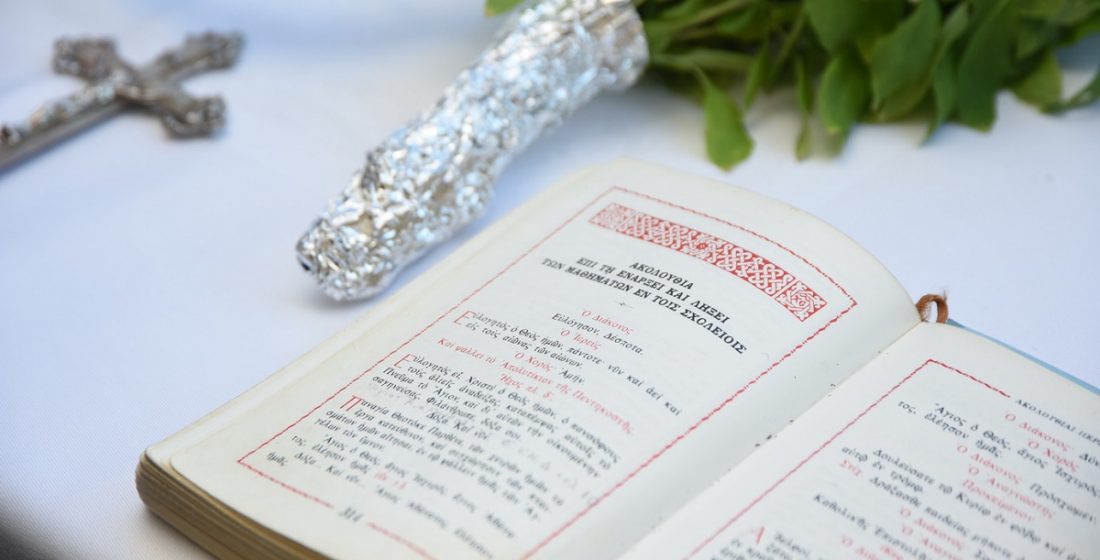 ΑΚΟΛΟΥΘΙΑ
ΕΠΙ ΤΗ ΕΝΑΡΞΕΙ ΚΑΙ ΛΗΞΕΙ
ΤΩΝ ΜΑΘΗΜΑΤΩΝ ΕΝ ΤΟΙΣ ΣΧΟΛΕΙΟΙΣ
Ὁ Διάκονος
Εὐλόγησον, Δέσποτα.
Ὁ Ἱερεύς
Εὐλογητὸς ὁ Θεὸς ἡμῶν, πάντοτε νῦν καὶ ἀεὶ καὶ
εἰς τοὺς αἰῶνας τῶν αἰώνων.
Ὁ Χορός Ἀμήν.
Καὶ ψάλλει τὸ Ἀπολυτίκιον τῆς Πεντηκοστῆς.
Ἦχος πλ. δ.
Εὐλογητὸς εἶ, Χριστὲ ὁ Θεὸς ἡμῶν, ὁ πανσόφους
τοὺς ἁλιεῖς ἀναδείξας, καταπέμψας αὐτοῖς τὸ
Πνεῦμα τὸ Ἅγιον, καὶ δι' αὐτῶν τὴν οἰκουμένην
σαγηνεύσας, Φιλάνθρωπε, δόξα σοι.
Δόξα. Καὶ νῦν.
Παναγία Θεοτόκε Παρθένε, τῶν χειρῶν ἡμῶν τὰ
ἔργα κατεύθυνον, καὶ συγχώρησιν τῶν πταισμάτων
ἡμῖν αἴτησαι, ἐν τῷ ψάλλειν ἡμᾶς τῶν Ἀγγέλων
τὸν ὕμνον.
Ἅγιος ὁ Θεός, ἅγιος Ἰσχυρός, ἅγιος Ἀθάνατος,
ἐλέησον ἡμᾶς
Δόξα... Καὶ νῦν.
Ἅγιος Ἀθάνατος, ἐλέησον
314
ΑΚΟΛΟΥΘΙΑΙ
Ὁ Διάκονος
Ὁ Χορός
Ἅγιος ὁ Θεός, ἅγιος Ἰσχυρός
τος, ἐλέησον ἡμᾶς.
Ὁ Διάκονος Πρόσχωμεν.
Ὁ Ἀναγνώστης
Προκείμενον.
Δουλεύσατε τῷ Κυρίῳ ἐν φόβῳ καὶ
αὐτῷ ἐν τρόμῳ.
Στίχ. Δράξασθε παιδείας
Ὁ Διάκονος
Ὁ Ἀναγνώστης
Καθολικῆς Ἐπιστολῆς
Ὁ Διάκονος
Ἀδελφοί,